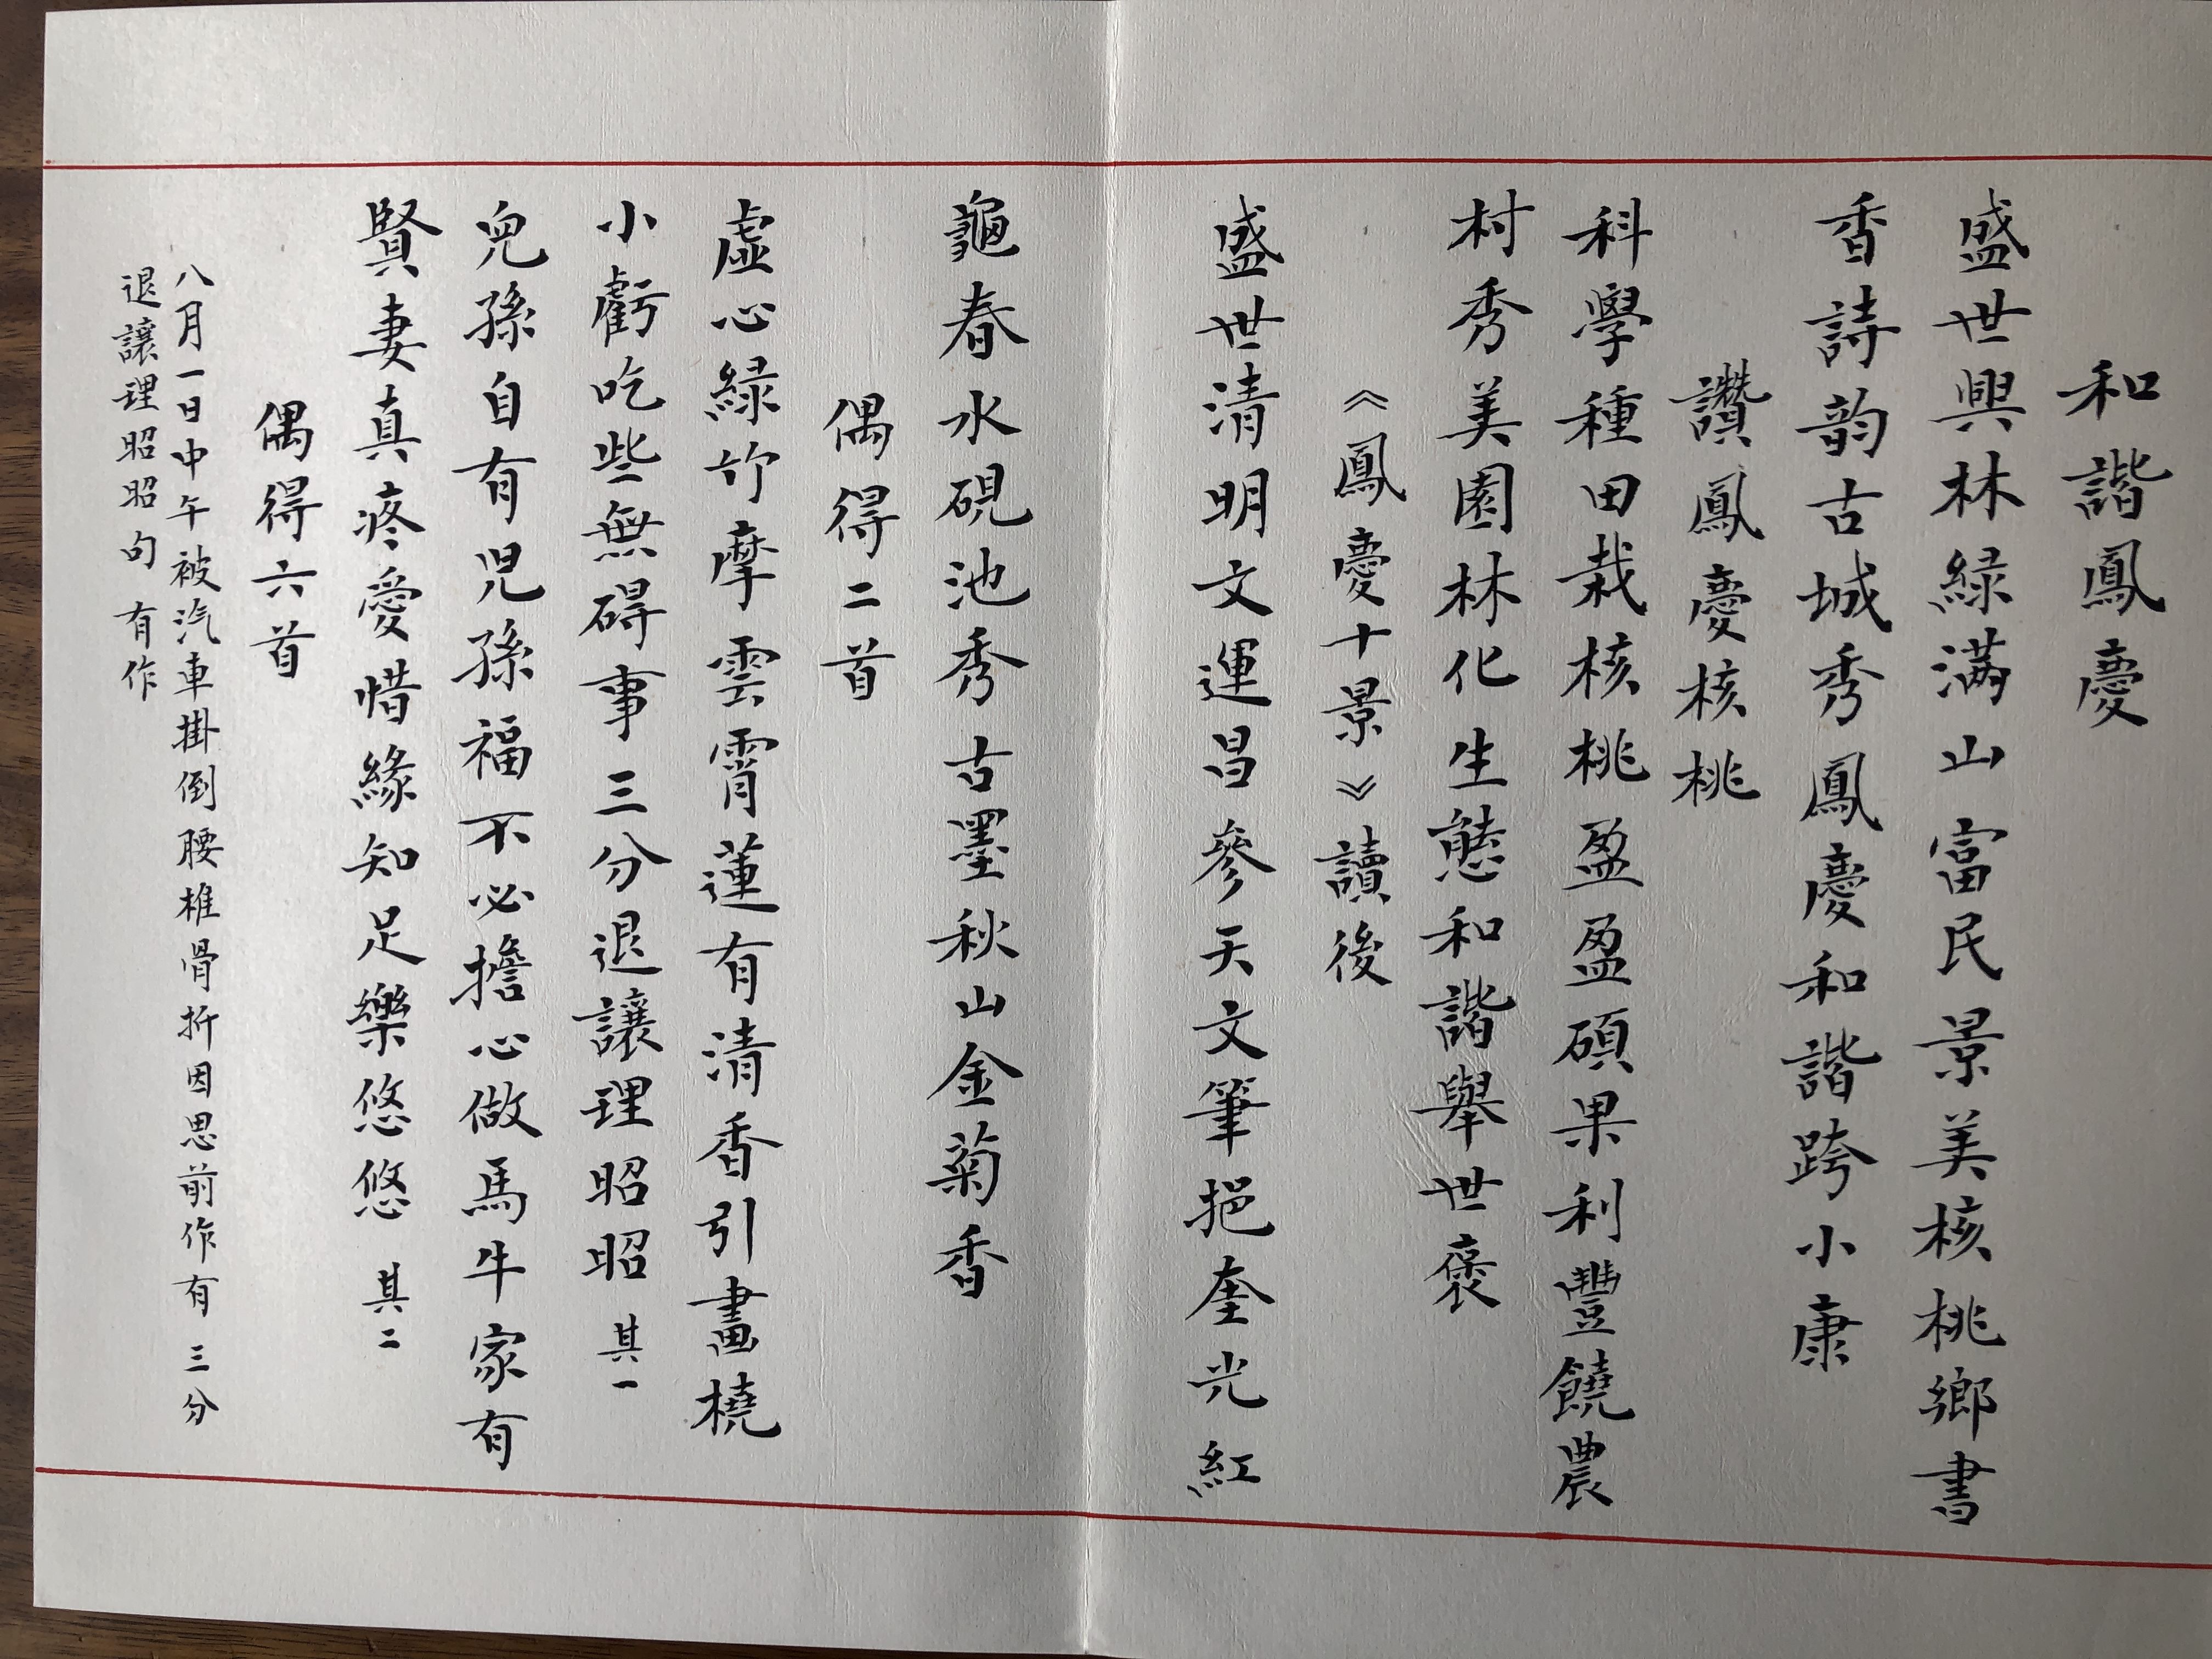 和諧鳳慶
盛世興林緑满山富民景美核桃鄉書
香詩韵古城秀鳳慶和諧跨小康
讚鳳慶核桃
科學種田栽核桃盈盈碩果利豐饒農
村秀美園林化生態和諧舉世褒
《鳳慶十景》讀後
盛世清明文運昌參天文筆挹奎光紅
龜春水硯池秀古墨秋山金菊香
偶得二首
虛心緑竹摩雲霄蓮有清香引畫橈
小虧吃些無碍事三分退讓理昭昭 其一
兒孫自有児孫福不必擔心做馬牛家有
賢妻真疼愛惜緣知足樂悠悠 其二
偶得六首
八月一日中午被汽車掛倒腰椎骨折因思前作有三分
退讓理昭昭句有作